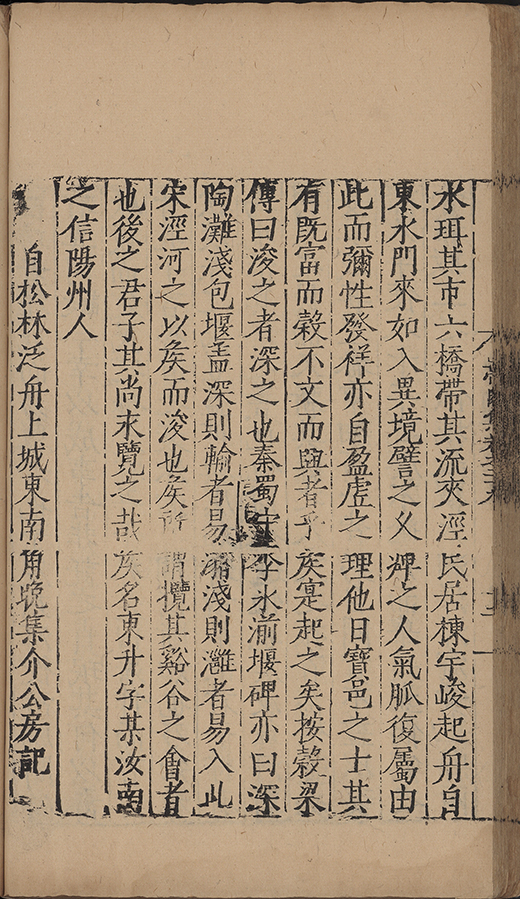 水珥其市六橋帶其流夾涇氏居棟宇峻起舟自
東水門來如入異境譬之之人氣脈復屬由
此而彌性發祥亦自盈虛之理他日寶邑之士其
有既富而穀不文而興者乎矦寔起之矣按穀梁
傳曰浚之者深之也秦蜀守李氷湔堰碑亦曰深
陶灘淺包堰盖深則輸者易瀦淺則灉者易入此
宋涇河之以矦而浚也矦所謂攬其谿谷之會者
也後之君子其尚未覽之哉矦名東升字某汝南
之信陽州人
自松林泛舟上城東南角晚集介公房記